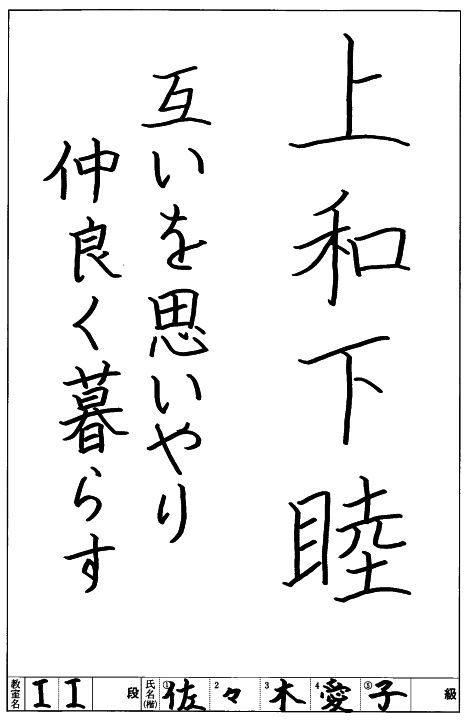 上和下睦
互いを思いやり
仲良く暮らす
教室名 エエ 段 氏名(楷) ①佐 2々 3木 4愛 ⑤子 級